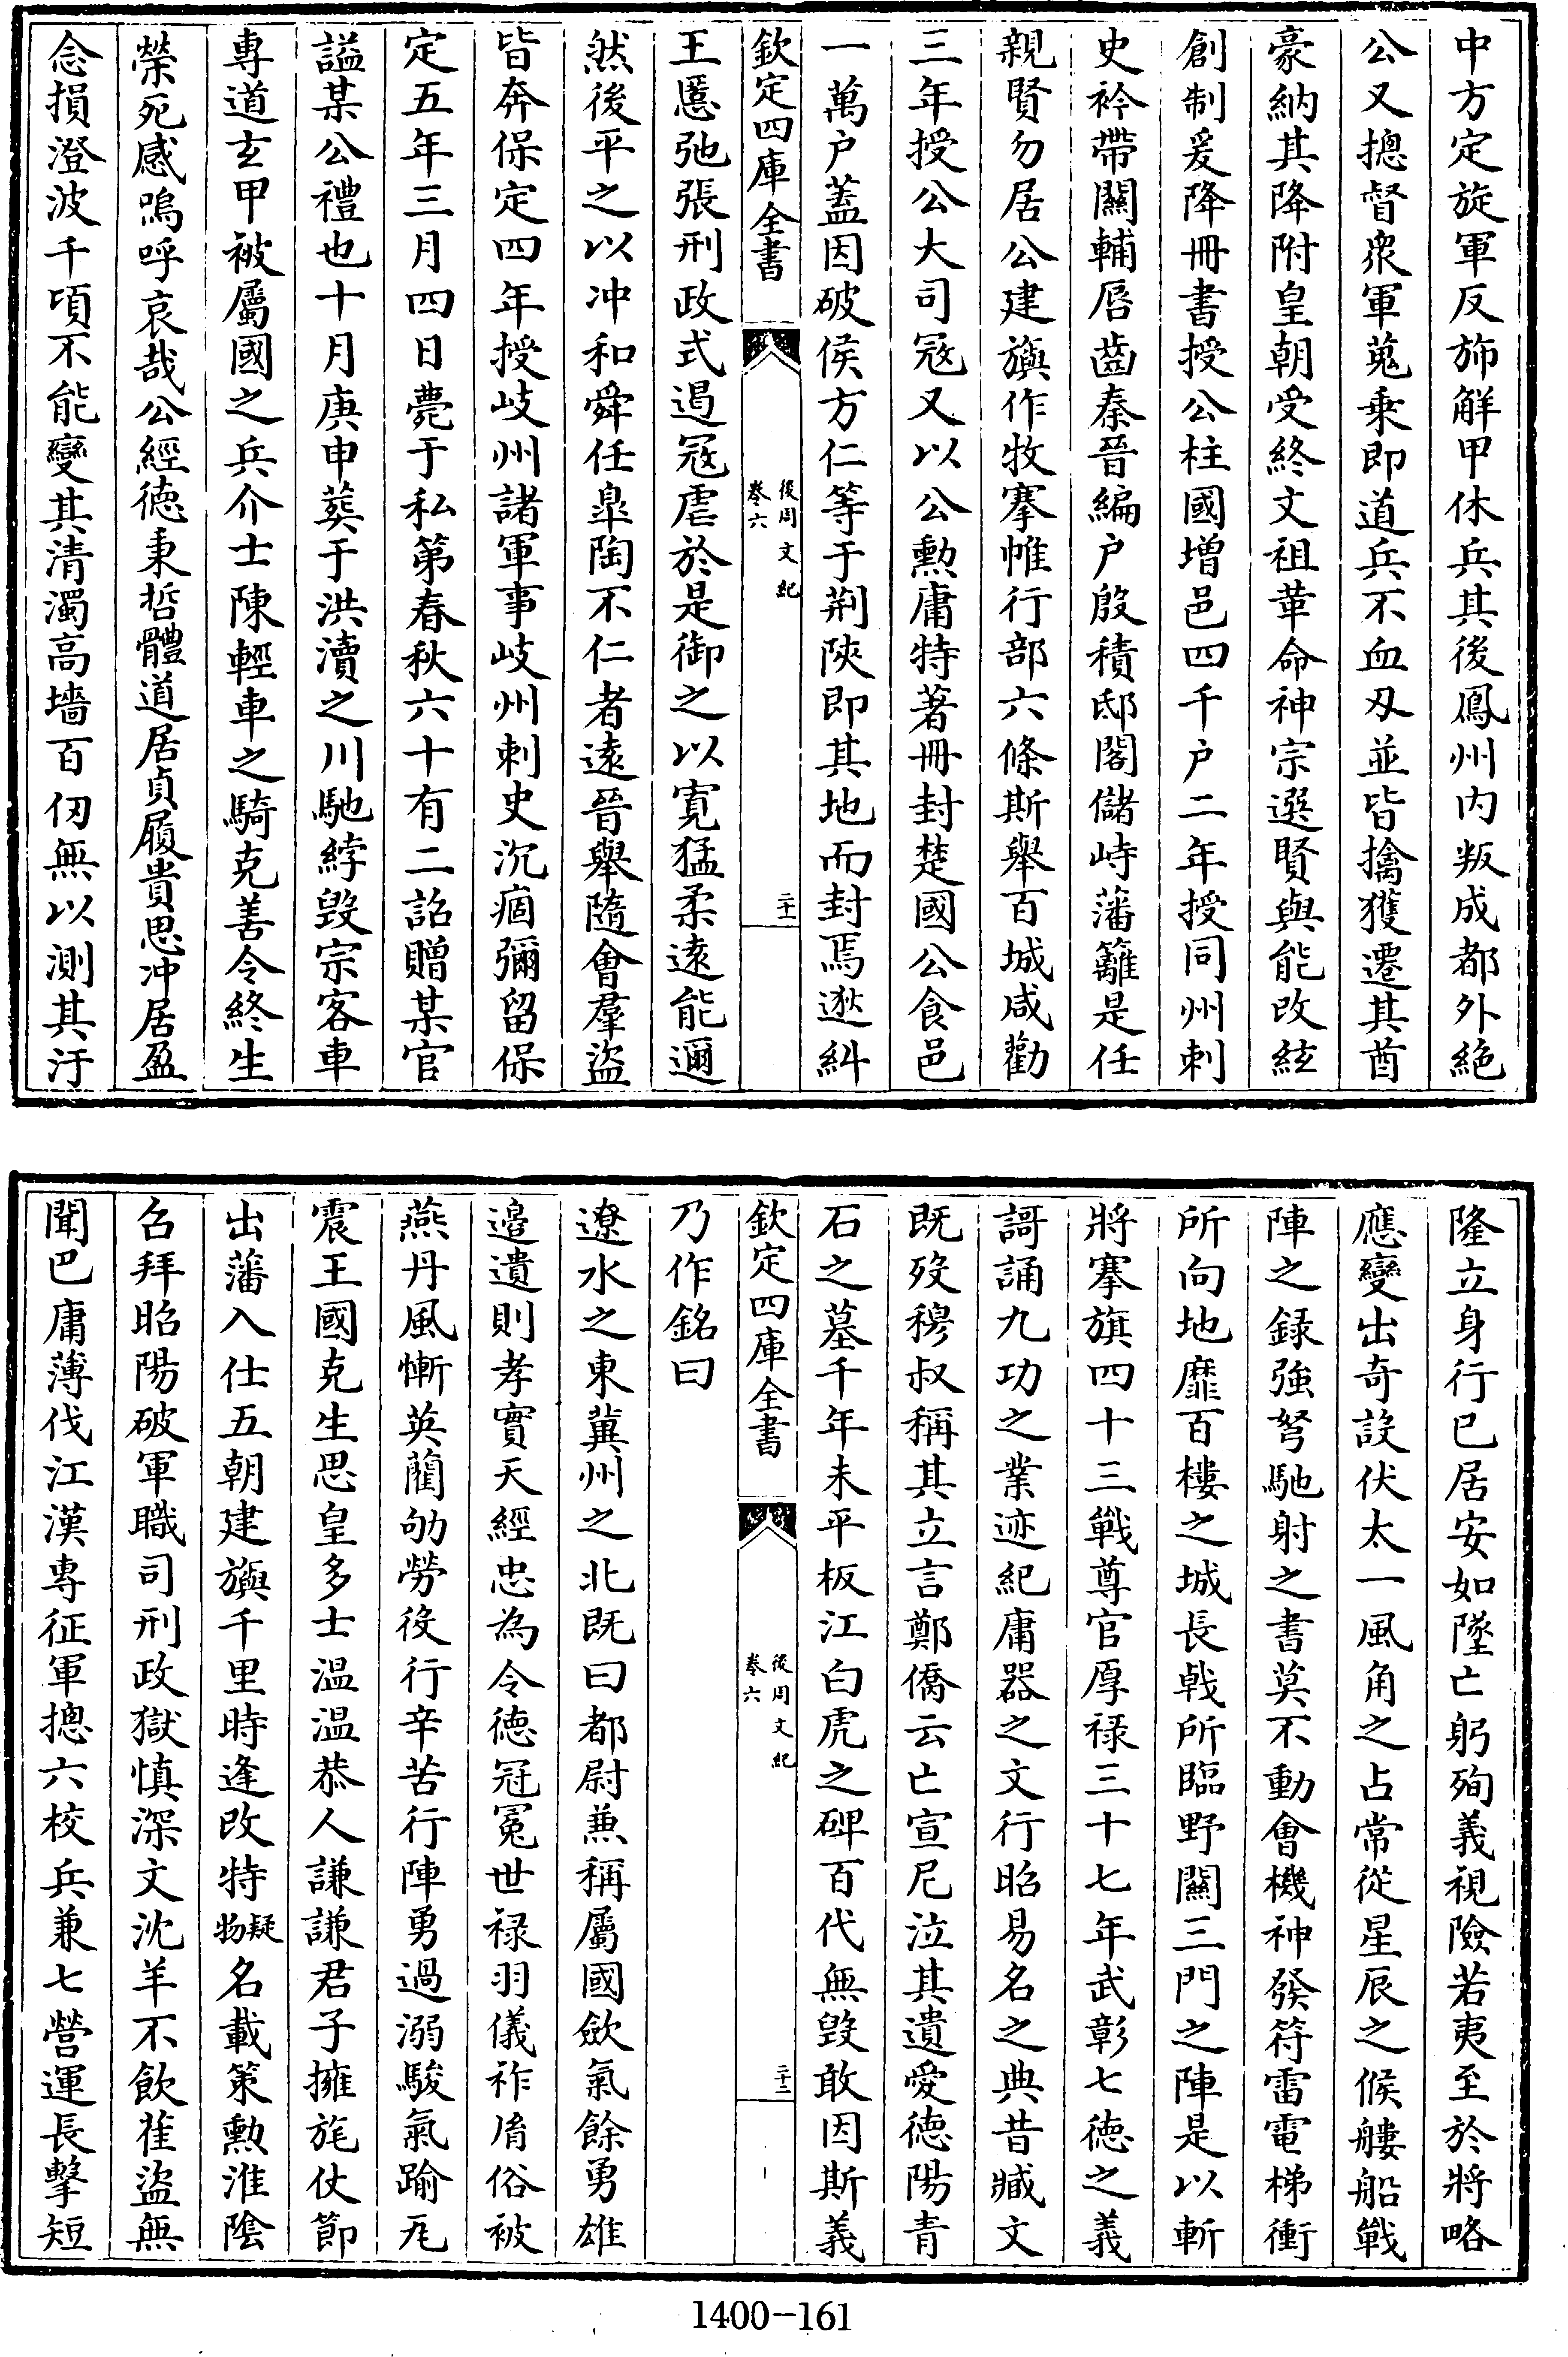 中方定旋軍反斾解甲休兵其後鳳州内叛成都外絶
公又摠督衆軍蒐乗即道兵不血刄並皆擒獲遷其酋
豪納其降附皇朝受終文祖革命神宗選賢與能改絃
創制爰降冊書授公柱國増邑四千户二年授同州刺
史衿帶關輔唇齒秦晉編户殷積邸閣儲峙藩籬是任
親賢勿居公建旟作牧搴帷行部六條斯舉百城咸勸
三年授公大司寇又以公勲庸特著冊封楚國公食邑
一萬户蓋因破侯方仁等于荆陜即其地而封焉逖糾
欽定四庫全書
後周文紀
卷六
二十一
王慝弛張刑政式遏寇虐於是御之以寛猛柔逺能邇
然後平之以冲和舜任臯陶不仁者逺晉舉隨會羣盜
皆奔保定四年授岐州諸軍事岐州刺史沉痼彌留保
定五年三月四日薨于私第春秋六十有二詔贈某官
謚某公禮也十月庚申葬于洪瀆之川馳綍毁宗客車
專道玄甲被屬國之兵介士陳輕車之騎克善令終生
榮死感嗚呼哀哉公經徳秉哲體道居貞履貴思冲居盈
念損澄波千頃不能變其清濁高墻百仞無以測其汙
隆立身行已居安如墜亡躬殉義視險若夷至於將略
應變出竒設伏太一風角之占常從星辰之候艛船戰
陣之録強弩馳射之書莫不動會機神發符雷電梯衝
所向地靡百樓之城長戟所臨野闢三門之陣是以斬
將搴旗四十三戰尊官厚禄三十七年武彰七徳之義
謌誦九功之業迹紀庸器之文行昭易名之典昔臧文
既歿穆叔稱其立言鄭僑云亡宣尼泣其遺愛徳陽青
石之墓千年未平板江白虎之碑百代無毁敢因斯義
欽定四庫全書
後周文紀
卷六
二十二
乃作銘曰
遼水之東冀州之北既曰都尉兼稱屬國歛氣餘勇雄
邉遺則孝實天經忠為令徳冠冕世禄羽儀祚胤俗被
燕丹風慚英藺劬勞後行辛苦行陣勇過溺駿氣踰兀
震王國克生思皇多士温温恭人謙謙君子擁旄仗節
出藩入仕五朝建旟千里時逢改特疑物名載策勲淮隂
召拜昭陽破軍職司刑政獄慎深文沈羊不飲萑盜無
聞巴庸薄伐江漢專征軍摠六校兵兼七營運長擊短
1400-161